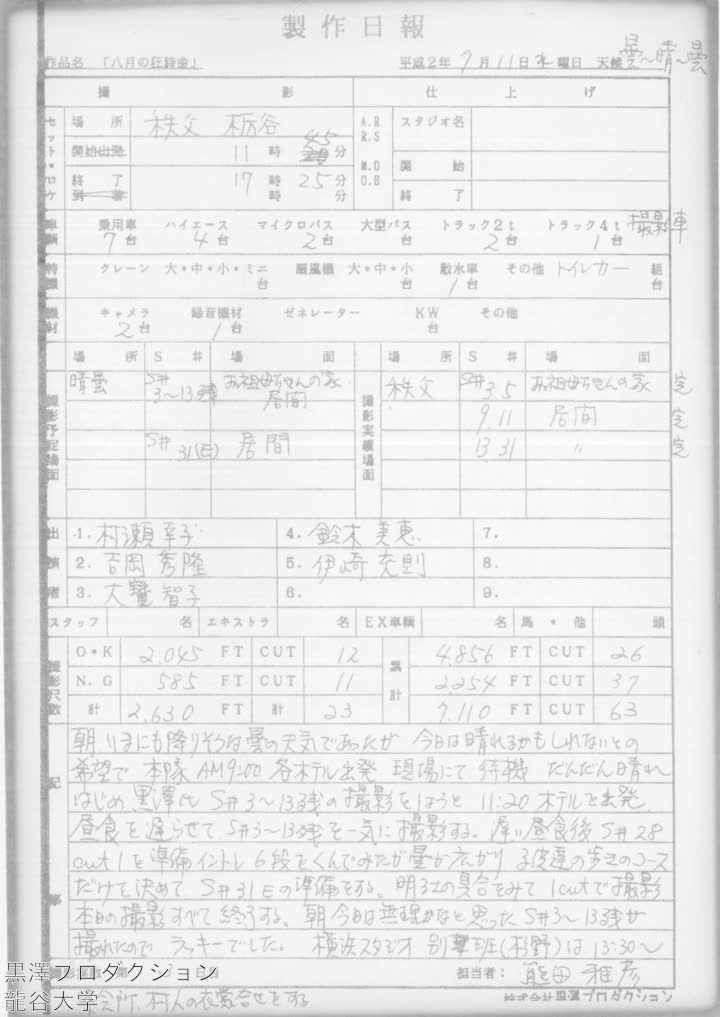 製作日報
作品名 「八月の狂詩曲」 平成2年 9月11日 水曜日 天候 曇〜晴〜曇
撮影 仕上げ
セット・ロケ 場所 秩父 栃谷 A.R R.S スタジオ名
開始出発 11時 45分 M.O D.B 開始
終了到着 17時 25分 終了
車輌 乗用車 7台 ハイエース 4台 マイクロバス 2台 大型バス トラック2t 2台 トラック4t 1台 撮影車
特機 クレーン 大・中・小・ミニ 台 扇風機 大・中・小 台 散水車 1台 その他 トイレカー 組 台
機材 キャメラ 2台 録音機材 1台 ゼネレーター KW 台 その他
場所 S# 場面 場所 S# 場面
撮影予定場面 晴曇 S# 3〜13残 お祖母ちゃんの家 居間 撮影実績場面 秩父 S# 3.5 お祖母ちゃんの家 完
9.11 居間 完
S# 31(E) 居間 13 31 〃 完
出演者 1. 村瀬幸子 4. 鈴木美恵 7.
2. 吉岡秀隆 5. 伊崎充則 8.
3. 大寶智子 6. 9.
スタッフ 名 エキストラ 名 EX車輌 名 馬・他 頭
撮影尺数 O・K 2,045 FT CUT 12 累計 4,856 FT CUT 26
N.G 585 FT CUT 11 2,254 FT CUT 37
計 2,630 FT 計 23 7,110 FT CUT 63
記事
朝、いまにも降りそうな曇の天気であったが 今日は晴れるかもしれないとの
希望で 本隊 AM9:00 各ホテル出発 現場にて待機 だんだん晴れ
はじめ 黒澤氏 S#3〜13残の撮影をしようと 11:20 ホテルを出発
昼食を遅らせて S#3〜13残を一気に撮影する。遅い昼食後 S#28
cut1を準備 イントレ6段をくんでみたが曇が広がり 子供達の歩きのコース
だけを決めて S#31Eの準備をする。明るさの具合をみて 1cutで撮影
本日の撮影すべて終了する。朝 今日は無理かなと思った S#3〜13残が
撮れたので ラッキーでした。 横浜スタジオ 別班(杉野)は 13:30〜
担当者: 熊田雅彦
会所、村人の衣裳合せをする
株式会社黒澤プロダクション
黒澤プロダクション
龍谷大学